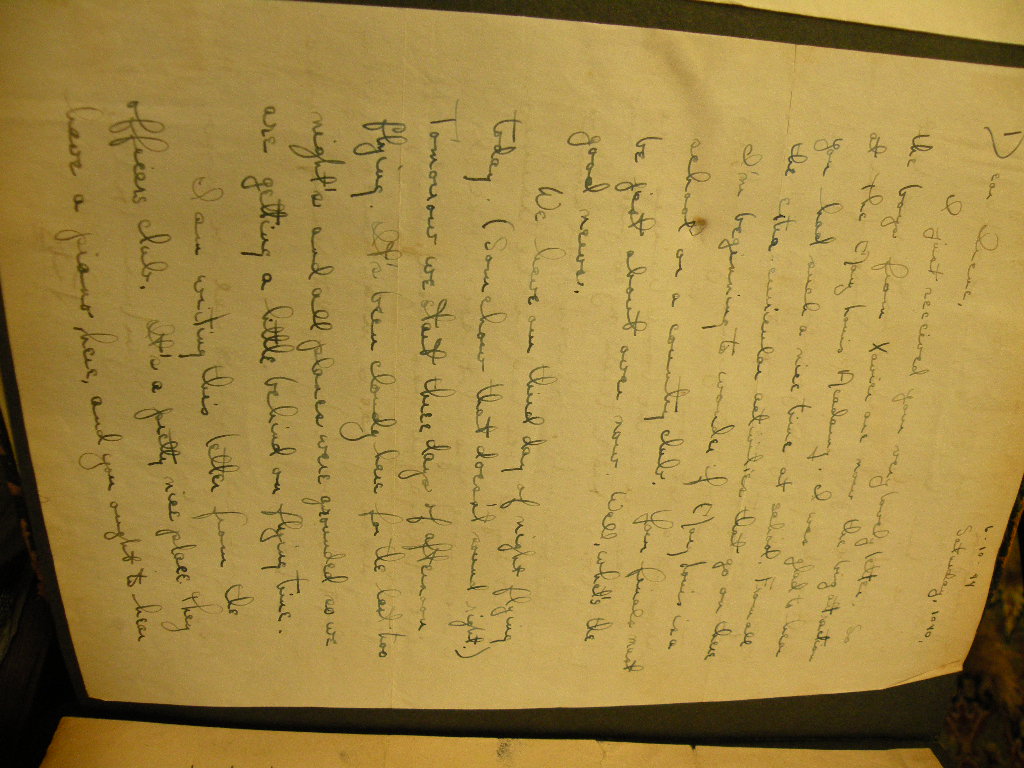 6-10-44
Saturday, 1040,
Dear Irene,
I just received your very lovel letter. So
the boys from Xavier are now the big attraction
at the Mary louis Academy. I was glad to hear
you had such a nice time at school. From all
the extra-curricular activities that go on there
I'm beginning to wonder if Mary louis is a
school or a country club. Your finals must
be just about over now. Well, what's the
good news.
We have our third day of night flying
today. (Somehow that doesn't sound right.)
Tomorrow we start three days of afternoon
flying. It's been cloudy here for the last two
night's and all planes were grounded so we
are getting a little behind on flying time.
I am writing this letter from the
officers club. It's a pretty nice place they
have a piano here, and you ought to hear